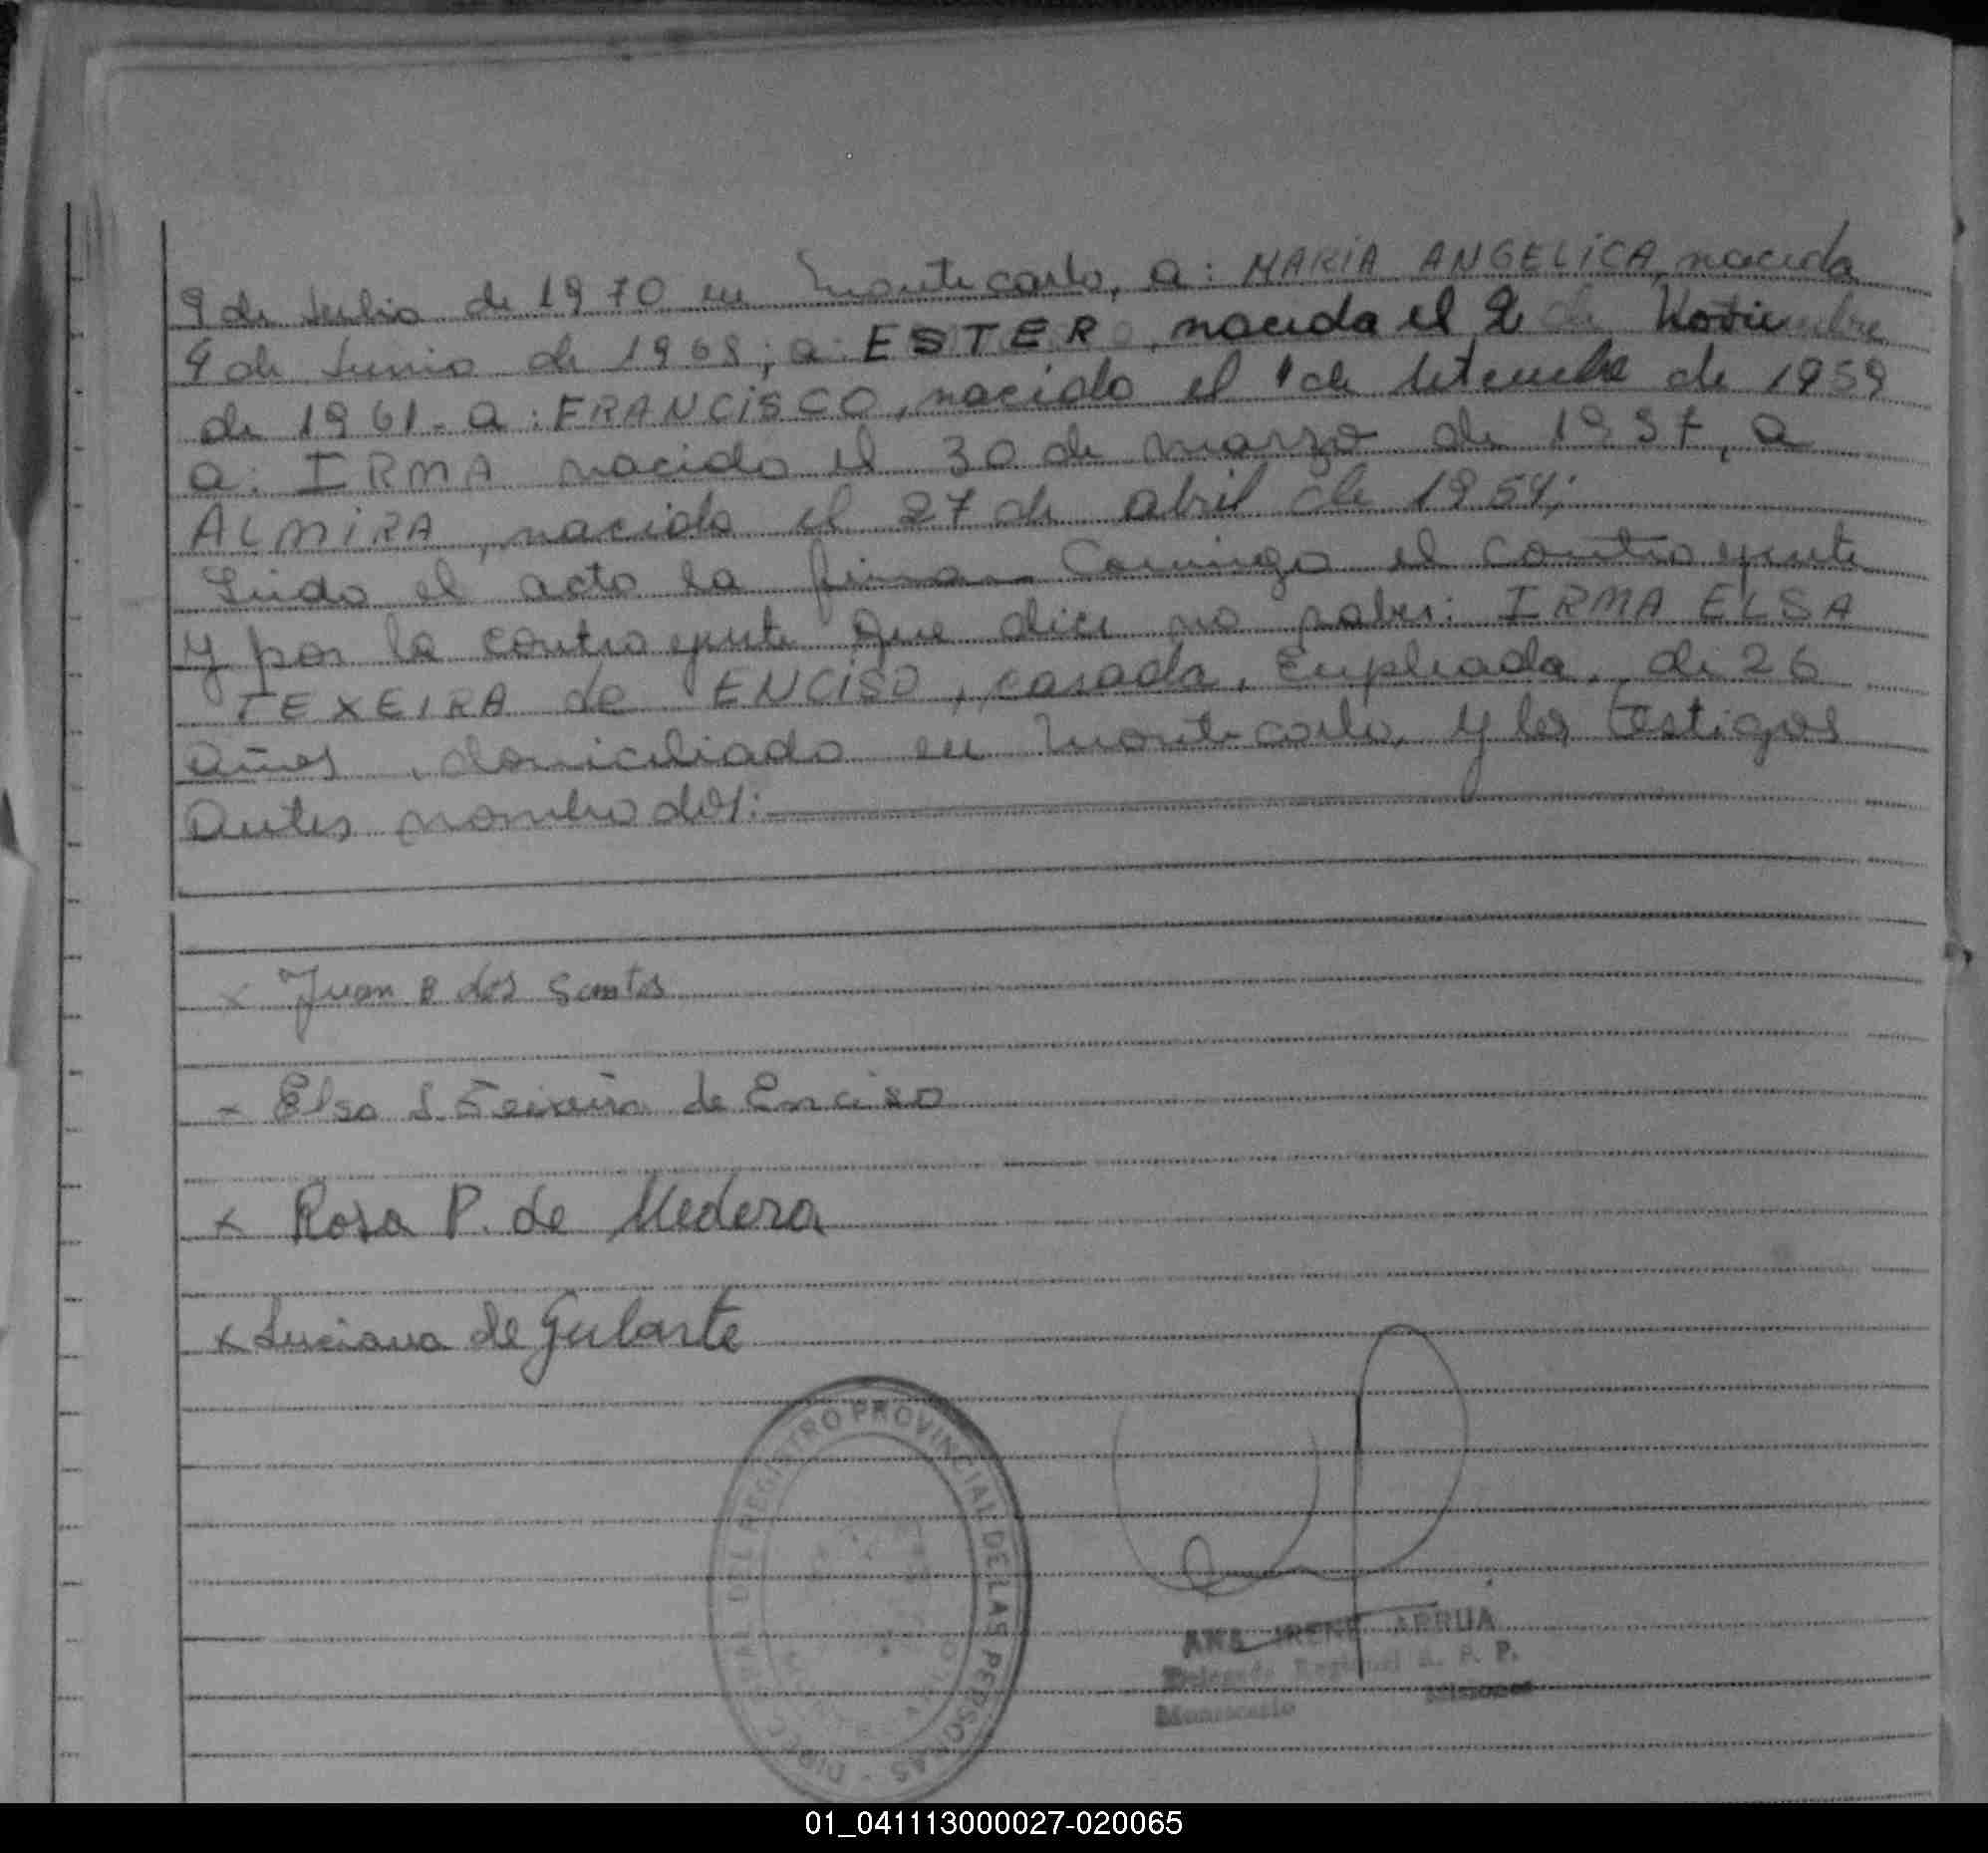 9 de Julio de 1970 en Montecarlo, a: MARIA ANGELICA, nacida
4 de Junio de 1968; a: ESTER, nacida el 2 de Noviembre
de 1961. a: FRANCISCO, nacido el 1 de setiembre de 1959
a: IRMA nacida el 30 de marzo de 1957, a
ALMIRA, nacida el 27 de abril de 1954;
Leido el acto la firman Conmigo el contrayente
y por la contrayente que dice no saber: IRMA ELSA
TEXEIRA de ENCISO, casada, Empleada, de 26
años, domiciliada en Montecarlo, y los testigos
Antes nombrados:
x Juan B dos Santos
- Elsa I. Teixeira de Enciso
x Rosa P. de Medera
x Luciana de Gularte
DEL REGISTRO PROVINCIAL DE LAS PERSONAS - DIREC
ANA IRENE ARRUA
Delegada Regional R. P. P.
Montecarlo Misiones
01_041113000027-020065